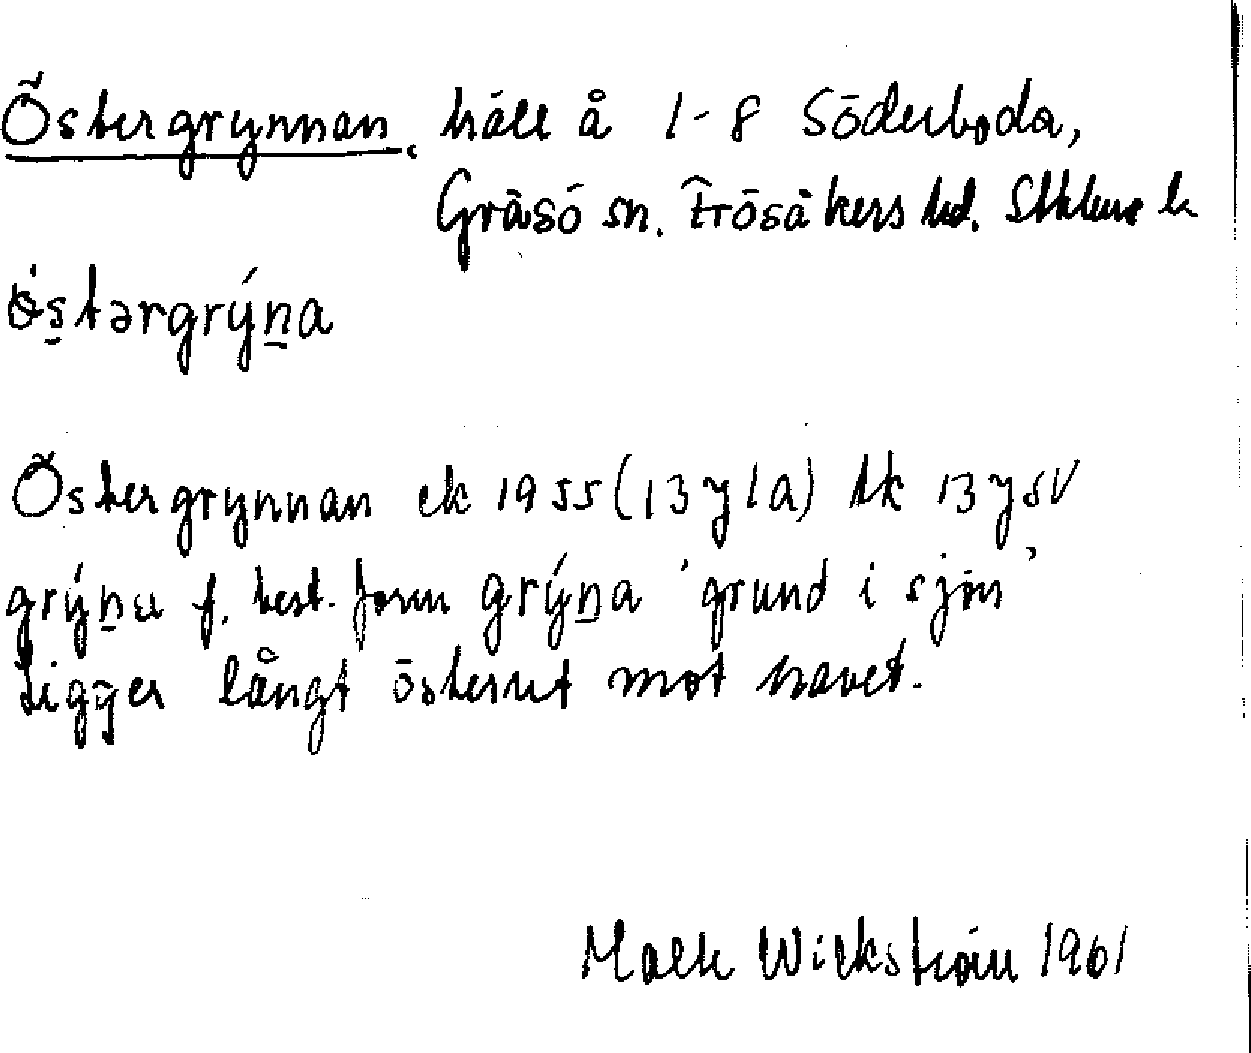 Östergrynnan. häll å 1-8 Söderboda,
Gräsö sn. Frösåkers hd. Sthlms l
ö́s̠tərgrýn̠a
Östergrynnan ek 1955 (13 y 1a) tk 13 y SV
grýn̠a f. best. form grýn̠a 'grund i sjön'
Ligger långt österut mot havet.
Wickström 1961